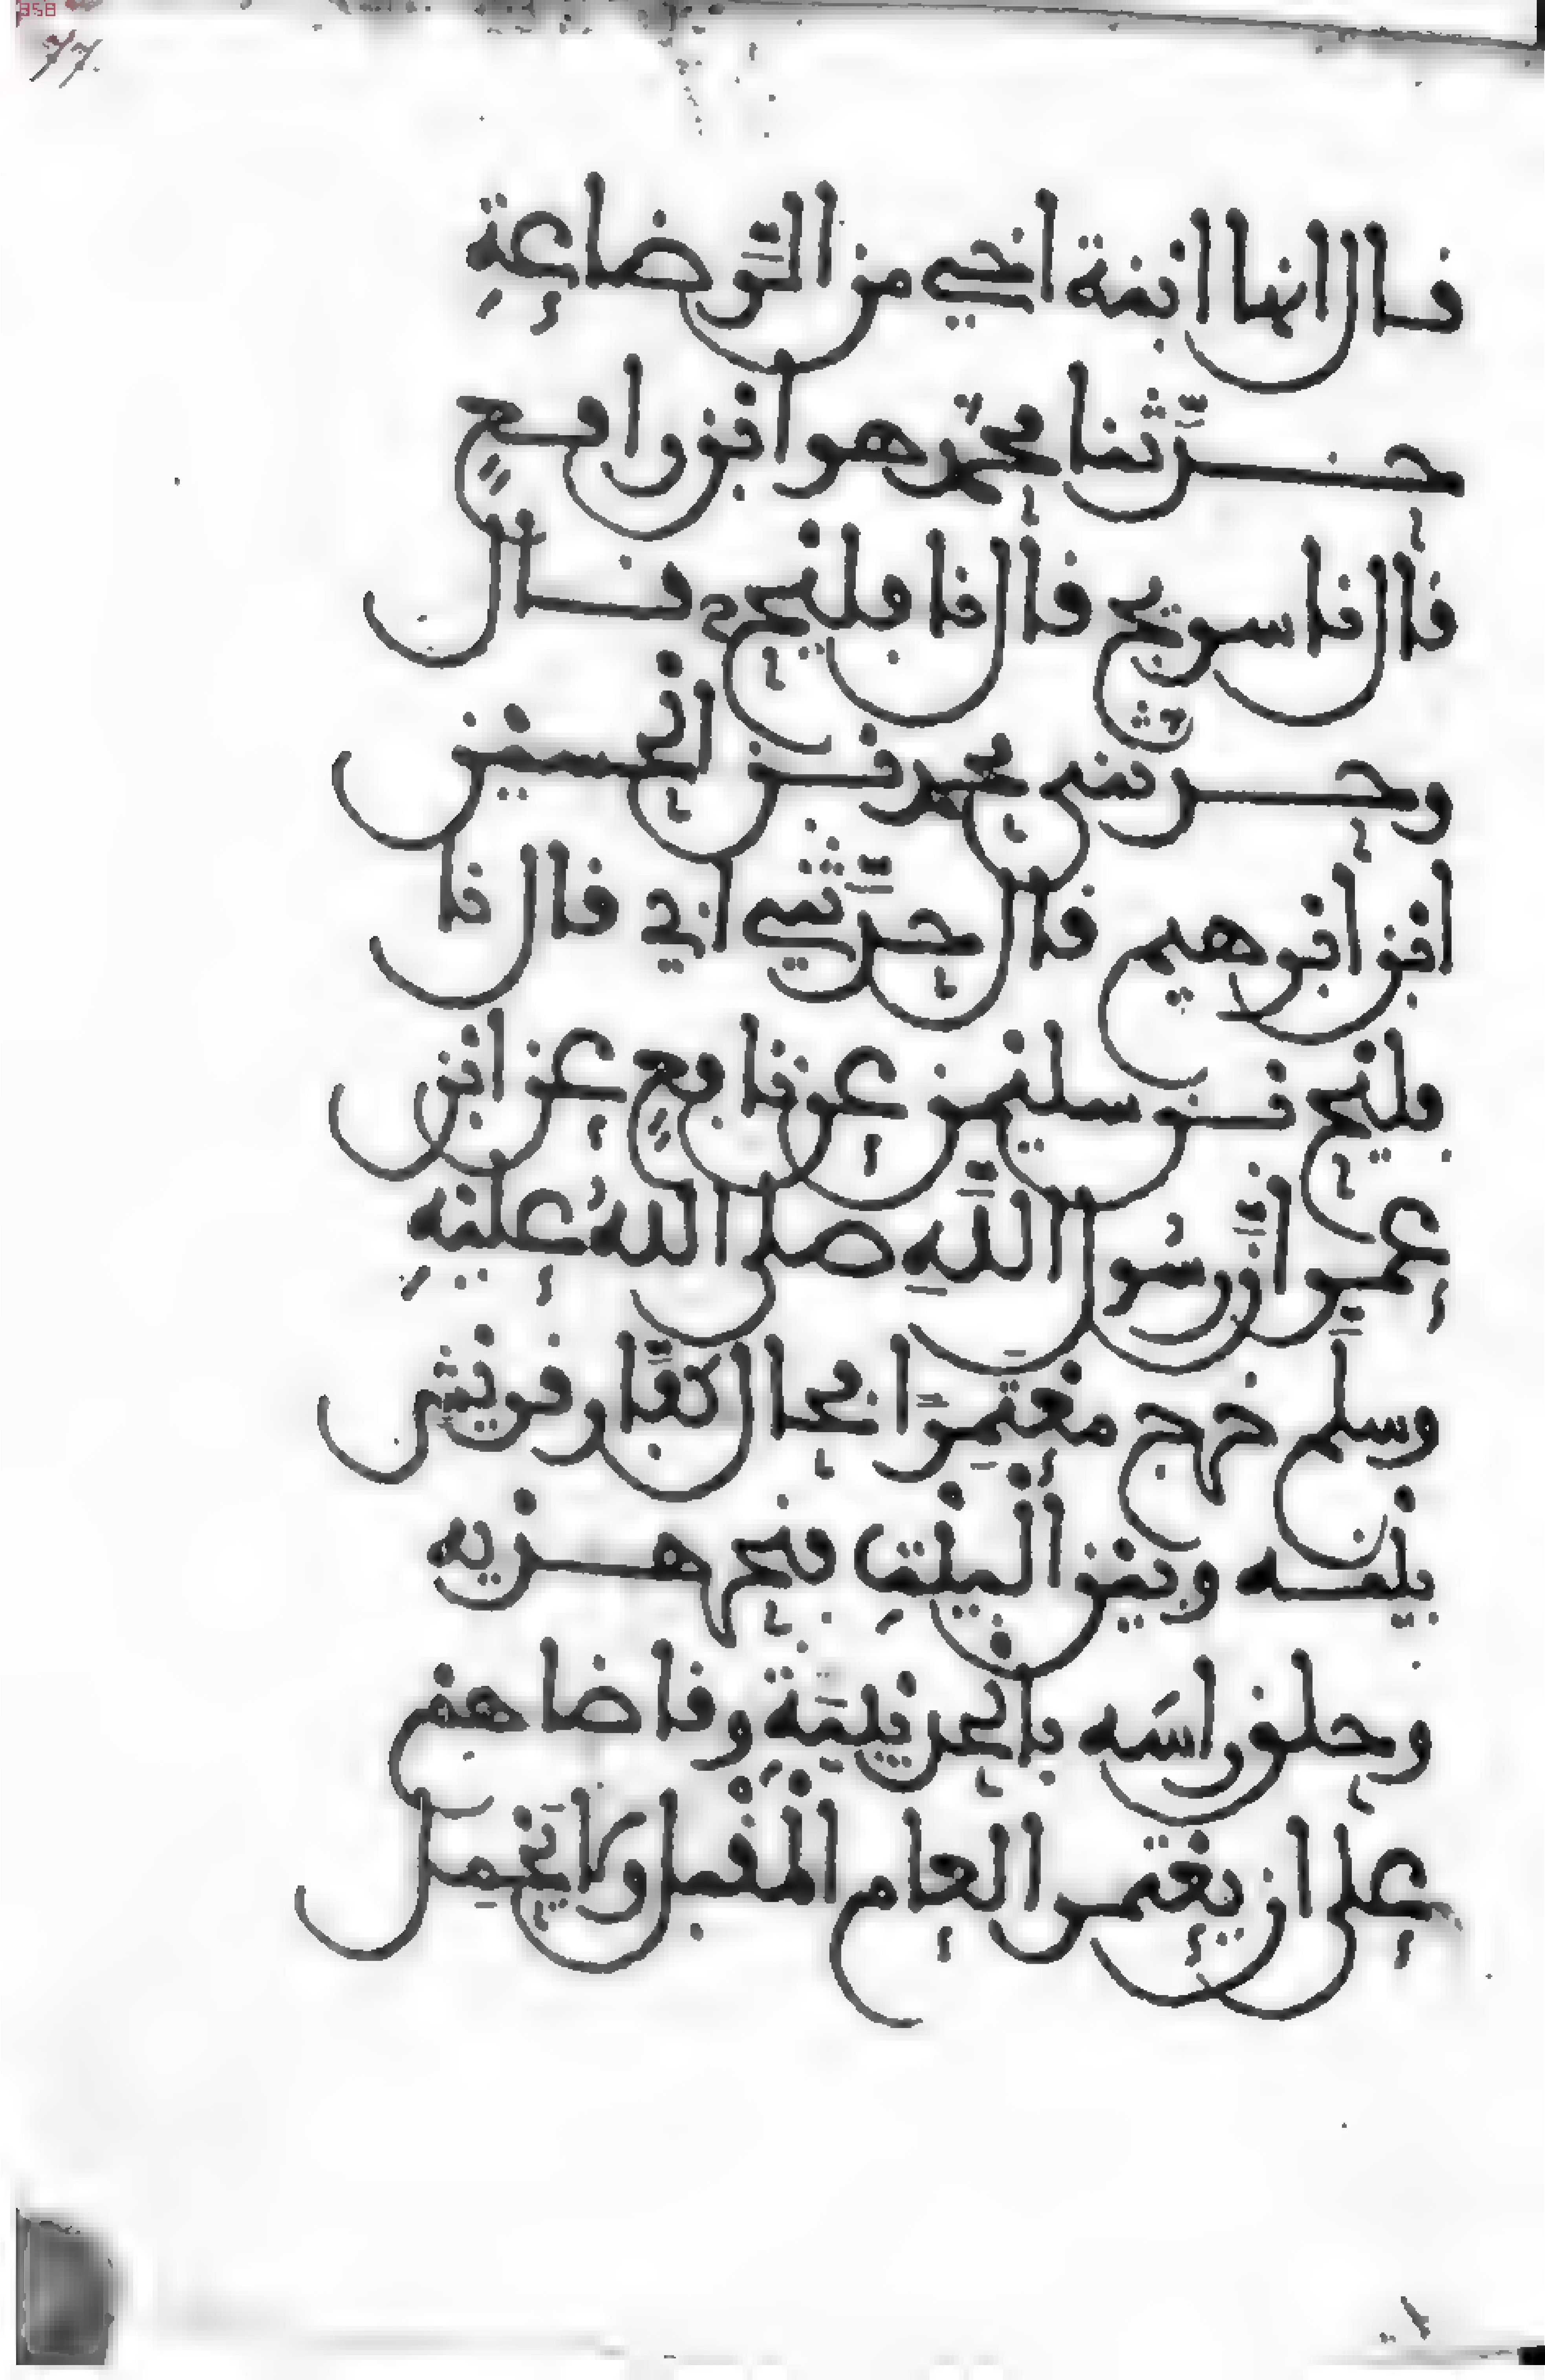 77.
قال انها ابنة اخي من الرَّضاعةِ
حدَّثنا محمّد هو ابن رافعٍ
قال نا سريج قال نا فليح ح قال
وحدثني محمد بن الحسين
ابن ابرهيم قال حدَّثني ابي قال نا
فليح بن سليمن عن نافعٍ عن ابن
عمر انَّ رسُول اللَّهِ صلى اللهُ عليْهِ
وسلم خرج معْتمِرًا فحال كفَّار قريْش
بيْنه وبيْن الْبيْتِ فنحر هديه
وحلق راسَه بالحديْبيَّة وقاضاهمْ
على ان يعْتمر العام الْمقْبل ولا يَحْمِل